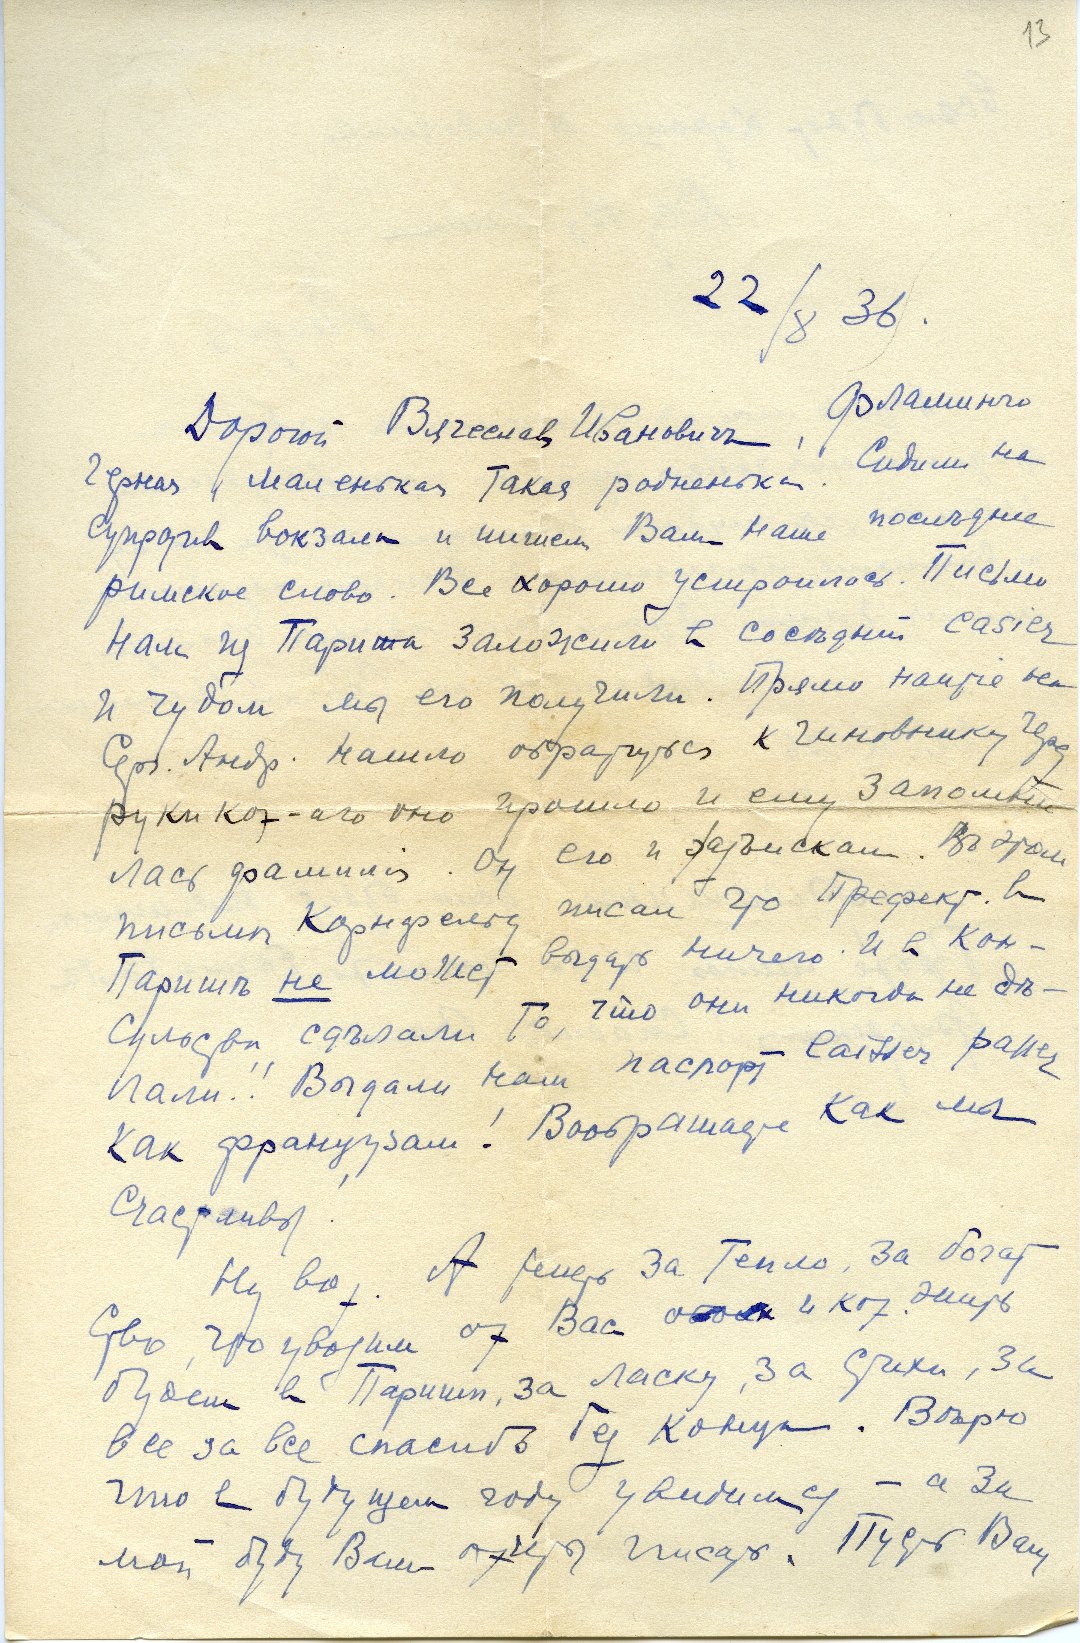 13
22/8 36.
Дорогой Вячеслав Ивановичъ, Фламинго
черная, маленькая такая родненькая. Сидим на
супротив вокзала и пишем Вам наше последнее
римское слово. Все хорошо устроилось. Письмо
нам из Парижа заложили в соседний casier
и чудом мы его получили. Прямо наитiе на
Серг. Андр. нашло обратиться к чиновнику через
руки кот-аго оно прошло и ему запомни
лась фамилiя. Он его и разыскал. Въ этом
письмѣ Корнфельд писал что Префект. в
Парижѣ не может выдать ничего. И в Кон-
сульствѣ сдѣлали то, что они никогда не дѣ-
лали!! Выдали нам паспорт laisser passer
как французам! Воображаете как мы
счастливы!
Ну вот. А теперь за тепло, за богат
ство, что увозим от Вас и кот. жить
будет в Парижѣ, за ласку, за стихи, за
все за все спасибо без конца. Вѣрю
что в будущем году увидимся – а за
мой буду Вам писать. Пусть Вам